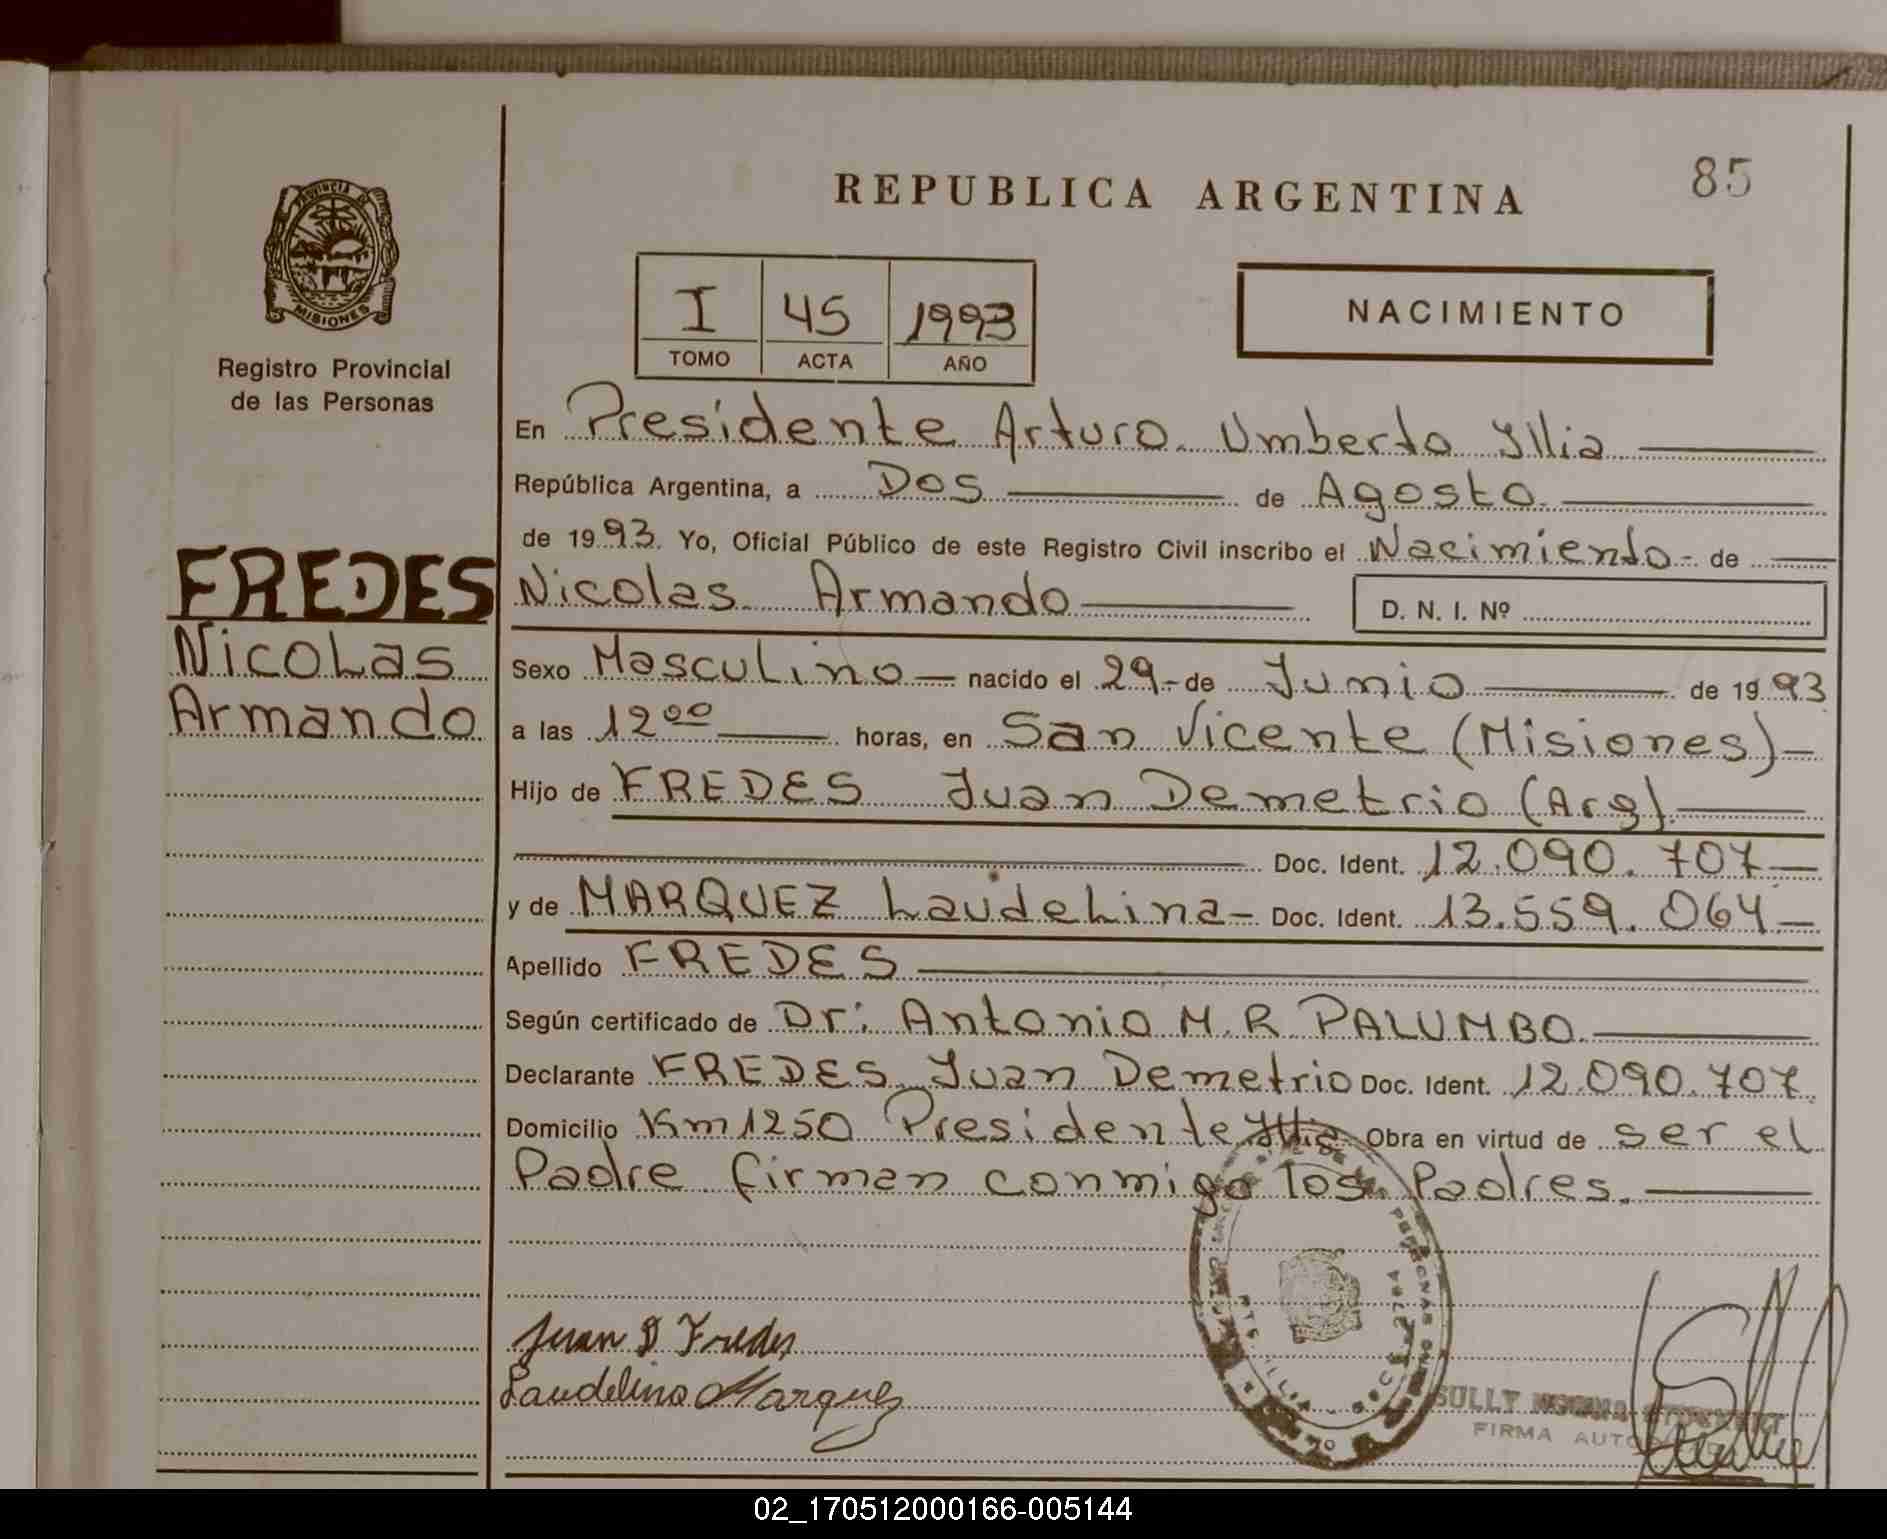 85
REPUBLICA ARGENTINA
PROVINCIA DE
MISIONES
Registro Provincial
de las Personas
I 45 1993
TOMO ACTA AÑO
NACIMIENTO
En Presidente Arturo Umberto Illia
República Argentina, a Dos de Agosto
de 1993. Yo, Oficial Público de este Registro Civil inscribo el Nacimiento de
FREDES
Nicolas
Armando
Nicolas Armando D. N. I. Nº
Sexo Masculino nacido el 29 de Junio de 1993
a las 12 00 horas, en San Vicente (Misiones)
Hijo de FREDES Juan Demetrio (Arg)
Doc. Ident. 12.090.707
y de MARQUEZ Laudelina Doc. Ident. 13.559.064
Apellido FREDES
Según certificado de Dr: Antonio M. R. PALUMBO
Declarante FREDES Juan Demetrio Doc. Ident. 12.090.707
Domicilio Km 1250 Presidente Illia Obra en virtud de ser el
Padre firman conmigo los Padres.
Juan D Fredes
Laudelina Marquez
SULLY
FIRMA
02_170512000166-005144